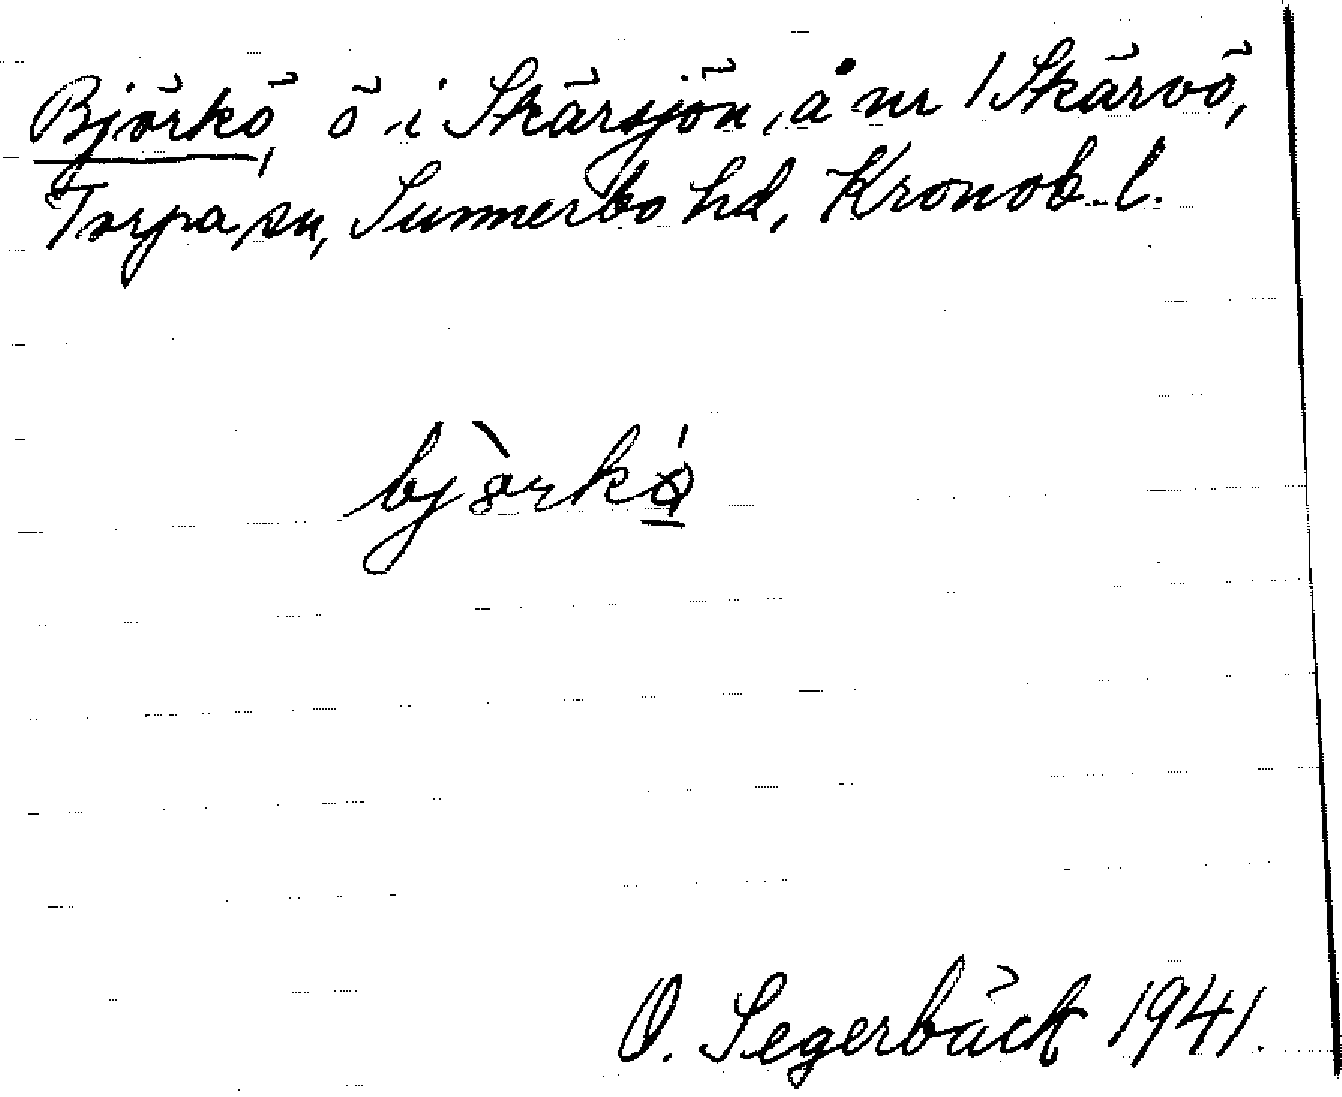 Björkö, ö i Skärsjön, å nr 1 Skärvö,
Torpa sn, Sunnerbo hd, Kronob. l.
bjò̀rkǿ
O. Segerbäck 1941.